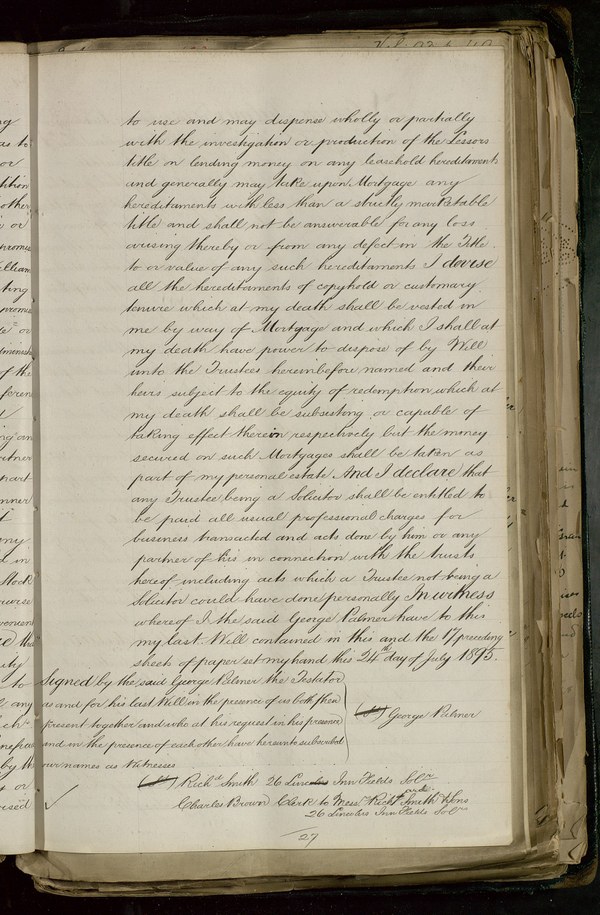 to use and may dispense wholly or partially
with the investigation or production of the Lessors
title on lending money on any leasehold hereditaments
and generally may take upon Mortgage any
hereditaments with less than a strictly marketable
title and shall not be answerable for any loss
arising thereby or from any defect in the Title
to or value of any such hereditaments I devise
all the hereditaments of copyhold or customary
tenure which at my death shall be vested in
me by way of Mortgage and which I shall at
my death have power to dispose of by Will
unto the Trustees hereinbefore named and their
heirs subject to the equity of redemption which at
my death shall be subsisting or capable of
taking effect therein respectively but the money
secured on such Mortgages shall be taken as
part of my personal estate And I declare that
any Trustee being a Solicitor shall be entitled to
be paid all usual professional charges for
business transacted and acts done by him or any
partner of his in connection with the trusts
hereof including acts which a Trustee not being a
Solicitor could have done personally In witness
whereof I the said George Palmer have to this
my last Will contained in this and the 17 preceding
sheets of paper set my hand this 24th day of July 1895.
Signed by the said George Palmer the Testator
as and for his last Will in the presence of us both then
present together and who at his request in his presence
and in the presence of each other have hereunto subscribed
our names as Witnesses
George Palmer
Richd Smith 26 Lincolns Inn Fields Solr
Charles Brown Clerk to Messrs Richd Smith and Sons
26 Lincolns Inn Fields Solrs
27